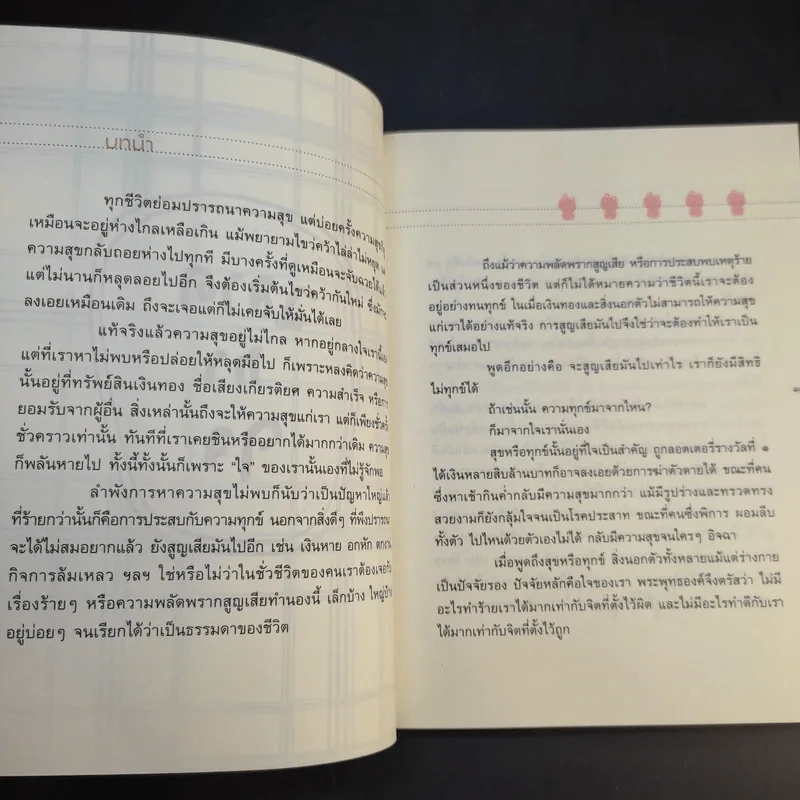 บทนำ
ทุกชีวิตย่อมปรารถนาความสุข แต่บ่อยครั้งความสุขก็ดู
เหมือนจะอยู่ห่างไกลเหลือเกิน แม้พยายามไขว่คว้าไล่ล่าไม่หยุด
ความสุขกลับถอยห่างไปทุกที มีบางครั้งที่ดูเหมือนจะจับฉวยได้แล้ว
แต่ไม่นานก็หลุดลอยไปอีก จึงต้องเริ่มต้นไขว่คว้ากันใหม่
ลงเอยเหมือนเดิม ถึงจะเจอแต่ก็ไม่เคยจับให้มั่นได้เลย
แท้จริงแล้วความสุขอยู่ไม่ไกล หากอยู่กลางใจเรานี้เอง
แต่ที่เราหาไม่พบหรือปล่อยให้หลุดมือไป ก็เพราะหลงคิดว่าความสุข
นั้นอยู่ที่ทรัพย์สินเงินทอง ชื่อเสียงเกียรติยศ ความสำเร็จ หรือการ
ยอมรับจากผู้อื่น สิ่งเหล่านั้นถึงจะให้ความสุขแก่เรา แต่ก็เพียงชั่วครั้ง
ชั่วคราวเท่านั้น ทันทีที่เราเคยชินหรืออยากได้มากกว่าเดิม ความสุข
ก็พลันหายไป ทั้งนี้ทั้งนั้นก็เพราะ “ใจ” ของเรานั้นเองที่ไม่รู้จักพอ
ลำพังการหาความสุขไม่พบก็นับว่าเป็นปัญหาใหญ่แล้ว
ที่ร้ายกว่านั้นก็คือการประสบกับความทุกข์ นอกจากสิ่งดีๆ ที่พึงปรารถนา
จะได้ไม่สมอยากแล้ว ยังสูญเสียมันไปอีก เช่น เงินหาย อกหัก ตกงาน
กิจการล้มเหลว ฯลฯ ใช่หรือไม่ว่าในชั่วชีวิตของคนเราต้องเจอกับ
เรื่องร้ายๆ หรือความพลัดพรากสูญเสียทำนองนี้ เล็กบ้าง ใหญ่บ้าง
อยู่บ่อยๆ จนเรียกได้ว่าเป็นธรรมดาของชีวิต
ถึงแม้ว่าความพลัดพรากสูญเสีย หรือการประสบพบเหตุร้าย
เป็นส่วนหนึ่งของชีวิต แต่ก็ไม่ได้หมายความว่าชีวิตนี้เราจะต้อง
อยู่อย่างทนทุกข์ ในเมื่อเงินทองและสิ่งนอกตัวไม่สามารถให้ความสุข
แก่เราได้อย่างแท้จริง การสูญเสียมันไปจึงใช่ว่าจะต้องทำให้เราเป็น
ทุกข์เสมอไป
พูดอีกอย่างคือ จะสูญเสียมันไปเท่าไร เราก็ยังมีสิทธิ
ไม่ทุกข์ได้
ถ้าเช่นนั้น ความทุกข์มาจากไหน?
ก็มาจากใจเรานั่นเอง
สุขหรือทุกข์นั้นอยู่ที่ใจเป็นสำคัญ ถูกลอตเตอรี่รางวัลที่ ๑
ได้เงินหลายสิบล้านบาทก็อาจลงเอยด้วยการฆ่าตัวตายได้ ขณะที่คน
ซึ่งหาเช้ากินค่ำกลับมีความสุขมากกว่า แม้มีรูปร่างและทรวดทรง
สวยงามก็ยังกลุ้มใจจนเป็นโรคประสาท ขณะที่คนซึ่งพิการ ผอมลีบ
ทั้งตัว ไปไหนด้วยตัวเองไม่ได้ กลับมีความสุขจนใครๆ อิจฉา
เมื่อพูดถึงสุขหรือทุกข์ สิ่งนอกตัวทั้งหลายแม้แต่ร่างกาย
เป็นปัจจัยรอง ปัจจัยหลักคือใจของเรา พระพุทธองค์จึงตรัสว่า ไม่มี
อะไรทำร้ายเราได้มากเท่ากับจิตที่ตั้งไว้ผิด และไม่มีอะไรทำดีกับเรา
ได้มากเท่ากับจิตที่ตั้งไว้ถูก